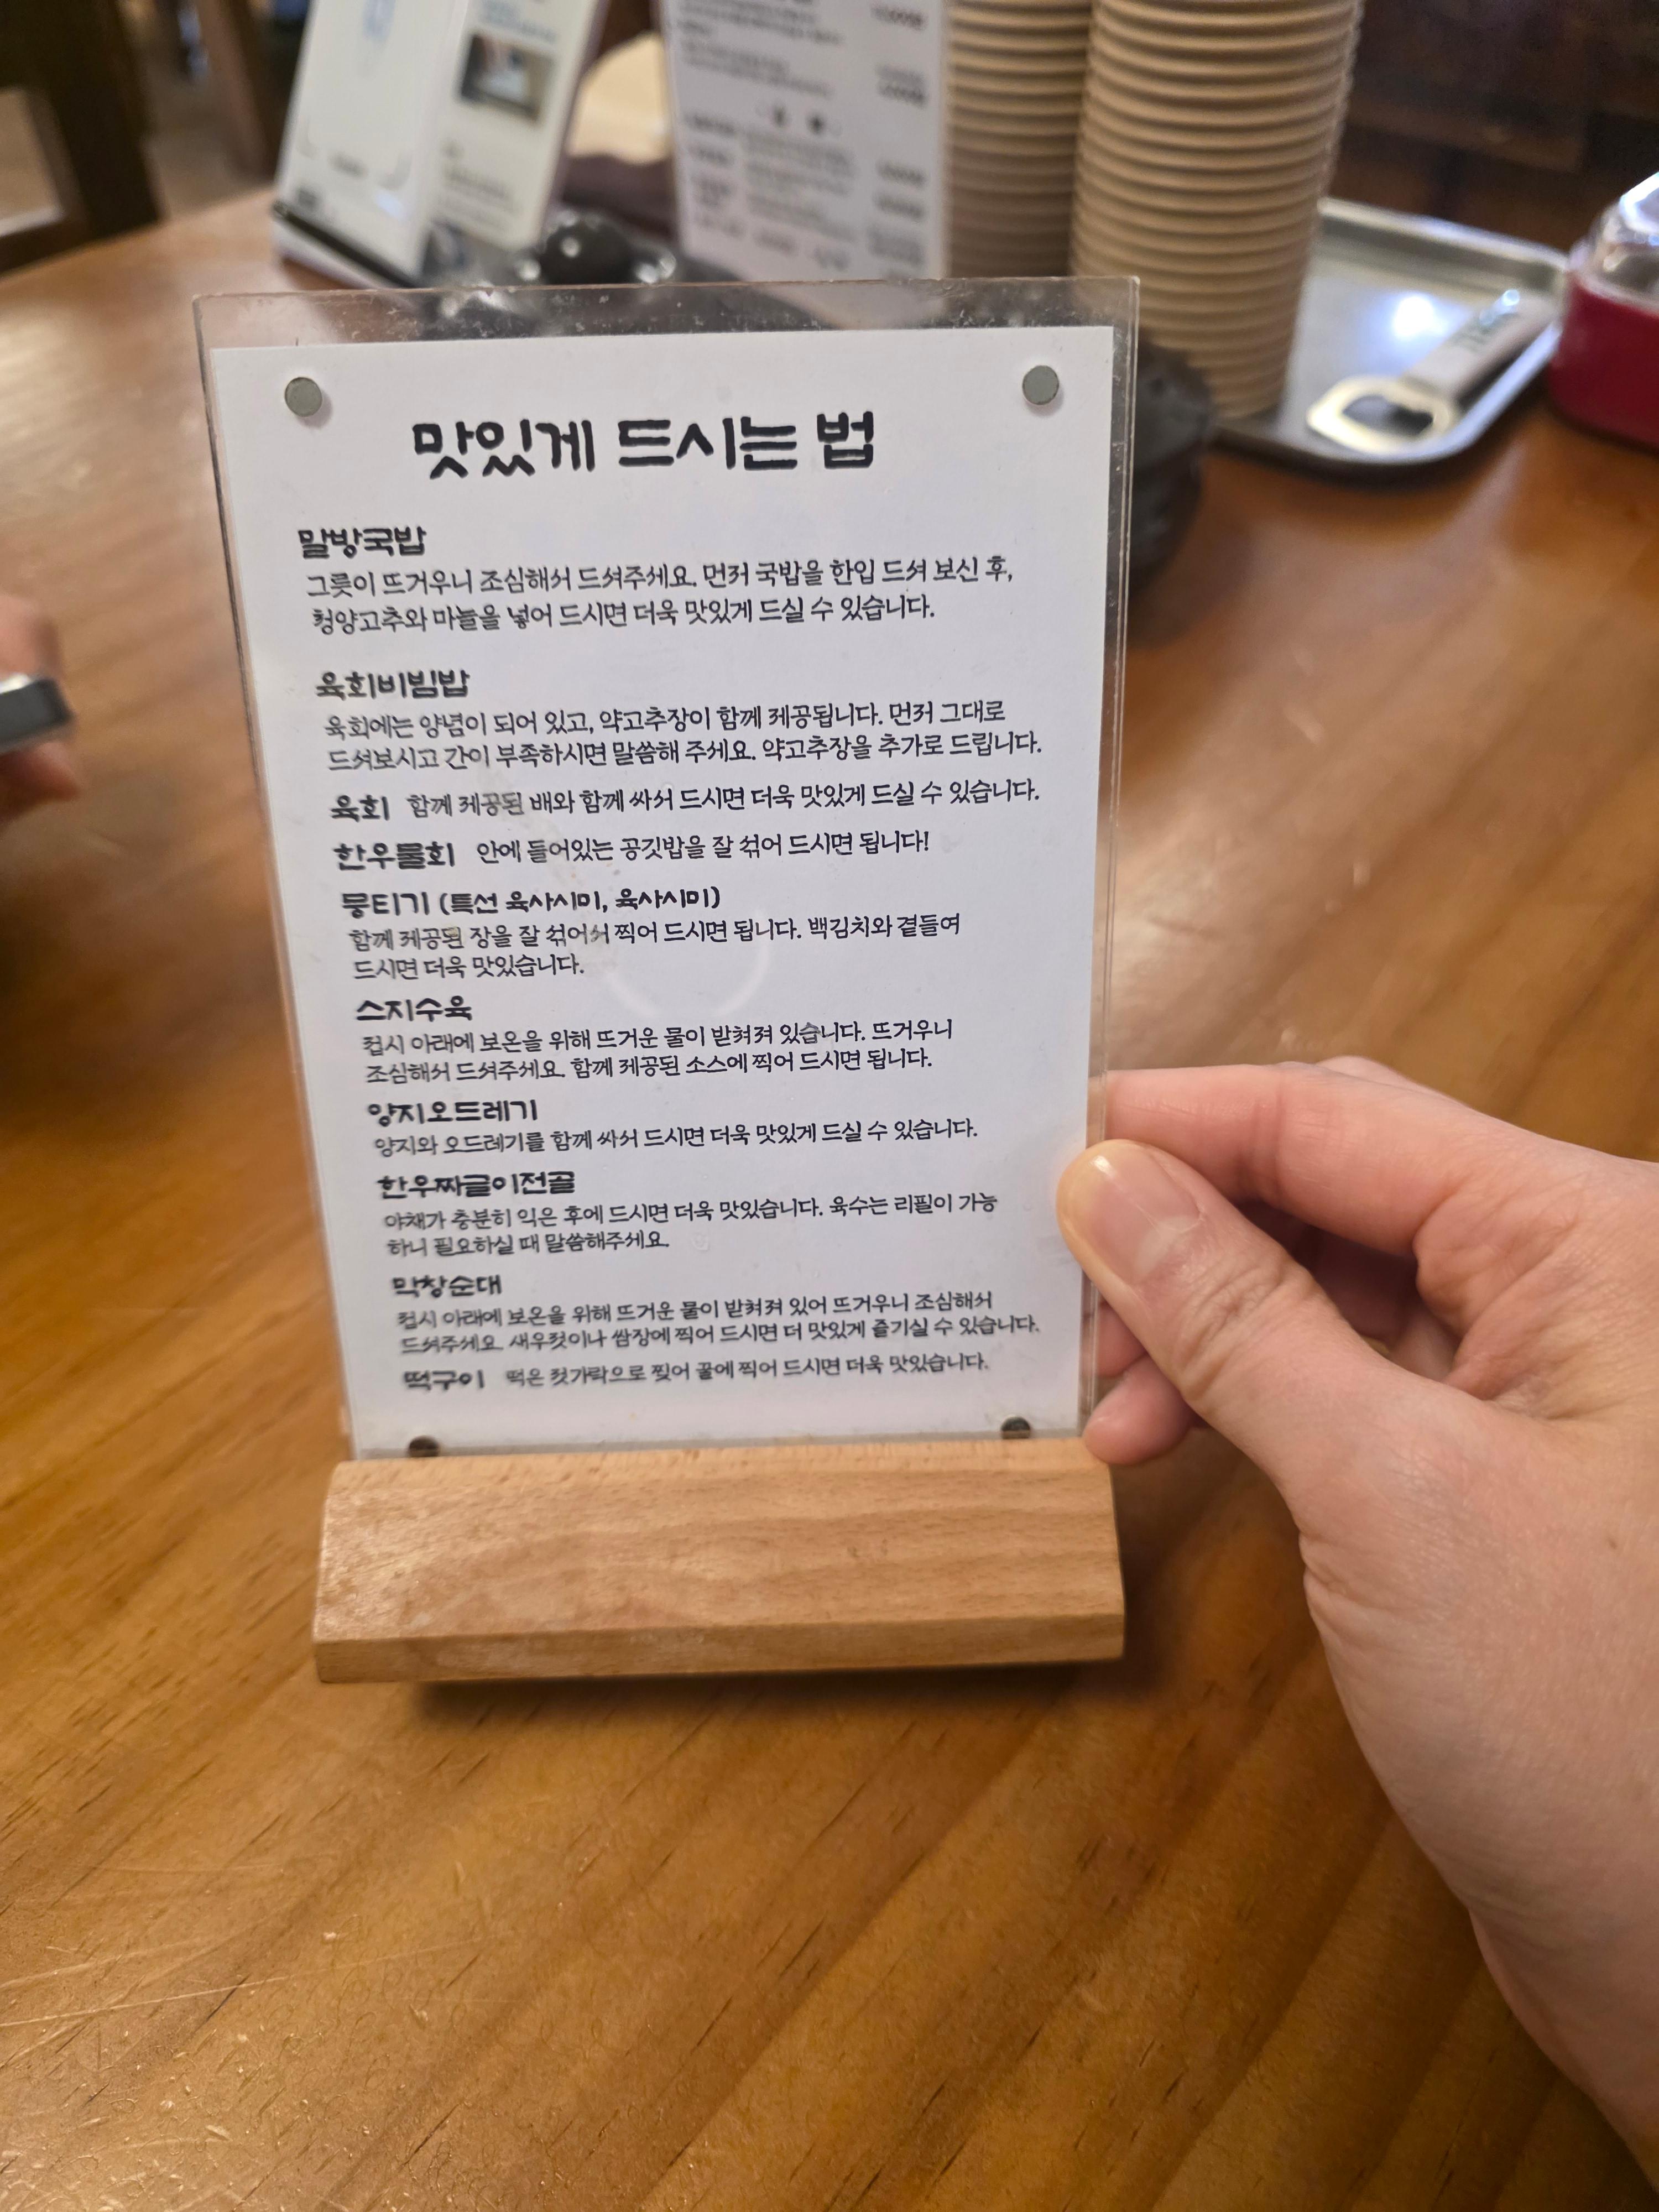 맛있게 드시는 법
말방국밥
그릇이 뜨거우니 조심해서 드셔주세요. 먼저 국밥을 한입 드셔 보신 후,
청양고추와 마늘을 넣어 드시면 더욱 맛있게 드실 수 있습니다.
육회비빔밥
육회에는 양념이 되어 있고, 약고추장이 함께 제공됩니다. 먼저 그대로
드셔보시고 간이 부족하시면 말씀해 주세요. 약고추장을 추가로 드립니다.
육회 함께 제공된 배와 함께 싸서 드시면 더욱 맛있게 드실 수 있습니다.
한우물회 안에 들어있는 공깃밥을 잘 섞어 드시면 됩니다!
뭉티기 (특선 육사시미, 육사시미)
함께 제공된 장을 잘 섞어서 찍어 드시면 됩니다. 백김치와 곁들여
드시면 더욱 맛있습니다.
스지수육
접시 아래에 보온을 위해 뜨거운 물이 받쳐져 있습니다. 뜨거우니
조심해서 드셔주세요. 함께 제공된 소스에 찍어 드시면 됩니다.
양지오드레기
양지와 오드레기를 함께 싸서 드시면 더욱 맛있게 드실 수 있습니다.
한우짜글이전골
야채가 충분히 익은 후에 드시면 더욱 맛있습니다. 육수는 리필이 가능
하니 필요하실 때 말씀해주세요.
막창순대
접시 아래에 보온을 위해 뜨거운 물이 받쳐져 있어 뜨거우니 조심해서
드셔주세요. 새우젓이나 쌈장에 찍어 드시면 더 맛있게 즐기실 수 있습니다.
떡구이 떡은 젓가락으로 찢어 꿀에 찍어 드시면 더욱 맛있습니다.